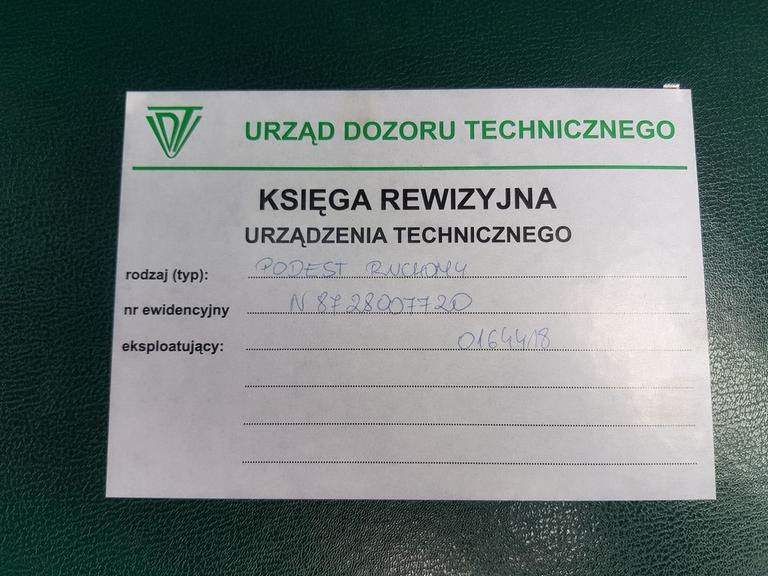 UDT
URZĄD DOZORU TECHNICZNEGO
KSIĘGA REWIZYJNA
URZĄDZENIA TECHNICZNEGO
rodzaj (typ): PODEST RUCHOMY
nr ewidencyjny N8728007720
eksploatujący: 0164418